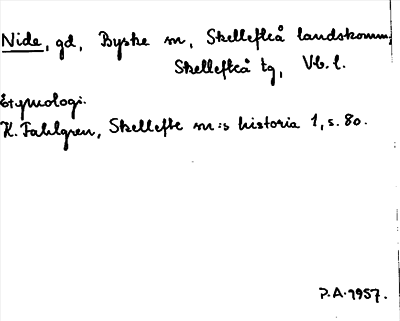 Nide, gd, Byske m, Skellefteå landskomm,
Skellefteå tg, Vb. l.
Etymologi.
K. Fahlgren, Skellefte m:s historia 1, s. 80.
P.A. 1957.